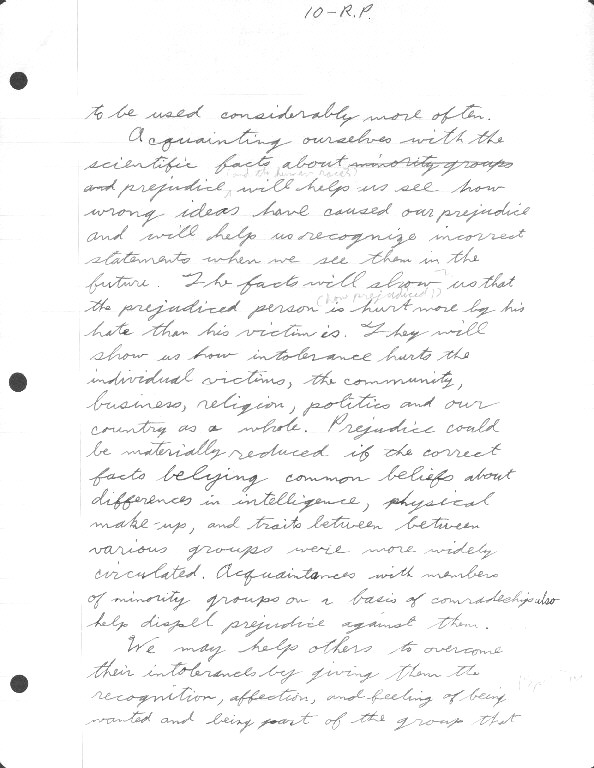 10-R.P.
to be used considerably more often.
Acquainting ourselves with the
scientific facts about minority groups
and the human race
and prejudice, will help us see how
wrong ideas have caused our prejudice
and will help us recognize incorrect
statements when we see them in the
future. The facts will show us that
(how prejudiced)
the prejudiced person is hurt more by his
hate than his victim is. They will
show us how intolerance hurts the
individual victims, the community,
business, religion, politics and our
country as a whole. Prejudice could
be materially reduced if the correct
facts belying common beliefs about
differences in intelligence, physical
make-up, and traits between between
various groups were more widely
circulated. Acquaintances with members
of minority groups on a basis of comradeship also
help dispell prejudice against them.
We may help others to overcome
their intolerances by giving them the
recognition, affection, and feeling of being
wanted and being part of the group that